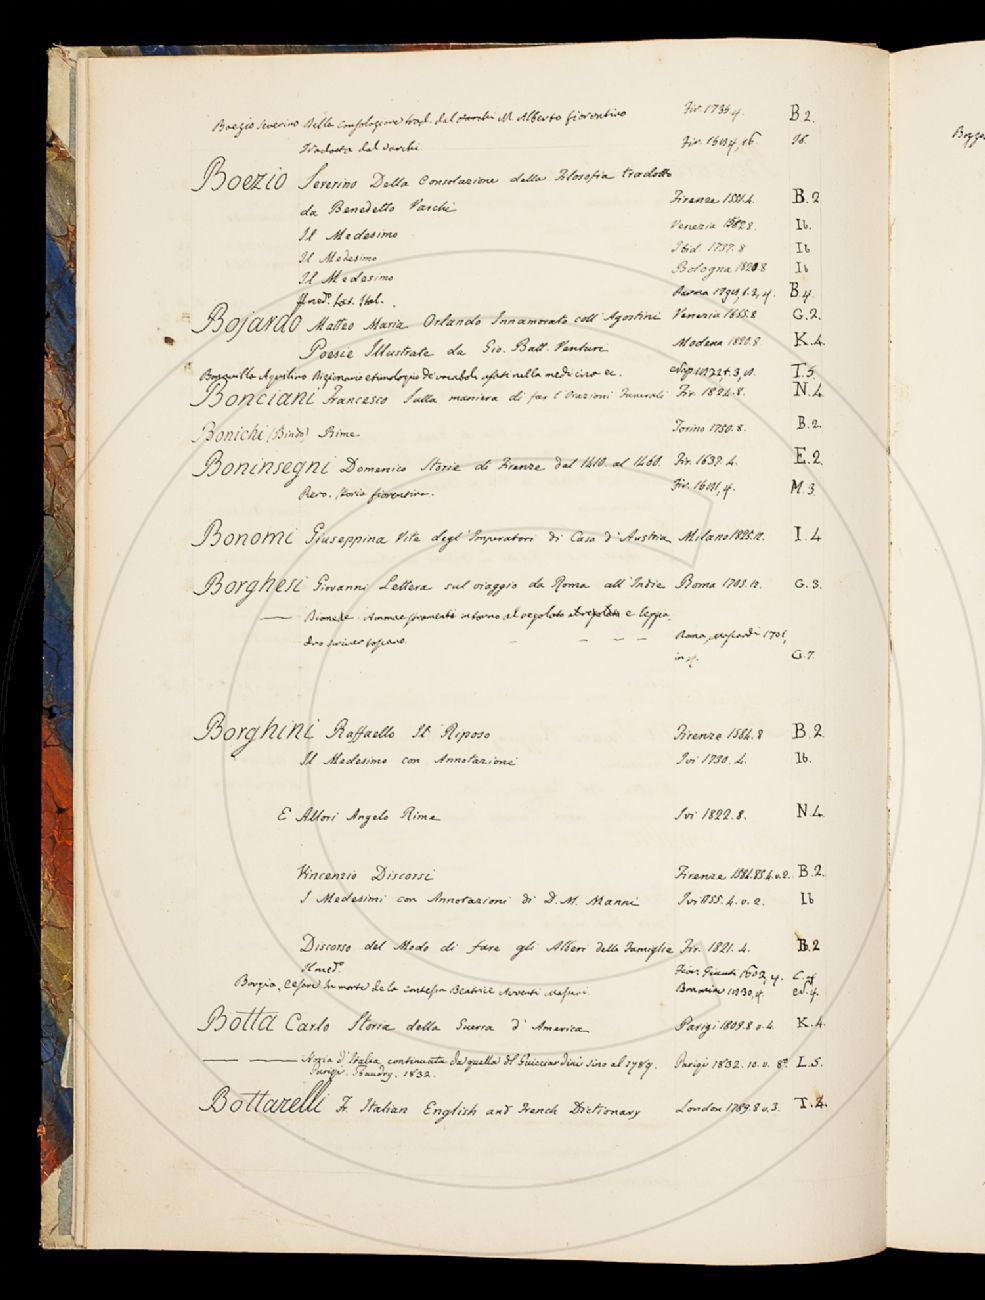 Boezio Severino della consolazione trad. dal M. Alberto fiorentino Fir. 1735 4. B.2.
Tradotta dal Varchi Fir. Ib.
Boezio Severino Della Consolazione della Filosofia tradotto
da Benedetto Varchi Firenze 1551.4. B.2
Il Medesimo Venezia Ib.
Il Medesimo Ibid. 1737.8 Ib
Il Medesimo Bologna 1820.8 Ib
Il med.º Parma B.4.
Bojardo Matteo Maria Orlando Innamorato coll' Agostini Venezia 1655.8 G.2.
Poesie Illustrate da Gio. Batt. Venturi Modena 1820.8 K.4.
Agostino Dizionario etimologico de' vocaboli usati nella medicina ec. T.5.
Bonciani Francesco Sulla maniera di far l'Orazioni Funerali Fir. 1824.8. N.4.
Bonichi (Bindo) Rime Torino 1750.8. B.2.
Boninsegni Domenico Storie di Firenze dal 1410. al 1460. Fir. 1637.4. E.2.
Piero. Storia fiorentina. Fir. M.3.
Bonomi Giuseppina Vite degl' Imperatori di Casa d'Austria Milano I.4
Borghesi Giovanni Lettera sul viaggio da Roma all' Indie Roma 1705.12. G.3.
intorno al regolato e leggia-
dro scriver toscano. Roma, 1701,
in 4. G.7.
Borghini Raffaello Il Riposo Firenze 1584.8 B.2.
Il Medesimo con Annotazioni Ivi 1730.4. Ib.
E Allori Angelo Rime Ivi 1822.8. N.4.
Vincenzio Discorsi Firenze 1584.85.4.v.2. B.2.
I Medesimi con Annotazioni di D. M. Manni Ivi 1755.4.v.2. Ib
Discorso del Modo di fare gli Alberi delle Famiglie Fir. 1821.4. B.2
Il med.º Fior. Giunti 1602, 4.
Borgia, Cesare In morte de la contessa Beatrice
Botta Carlo Storia della Guerra d'America Parigi 1809.8 v.4. K.4.
d'Italia continuata da quella del Guicciardini sino al 1789. Parigi 1832. 10.v. 8º L.5.
Parigi. Baudry. 1832.
Bottarelli F. Italian English and French Dictionary London 1789.8 v.3. T.4.